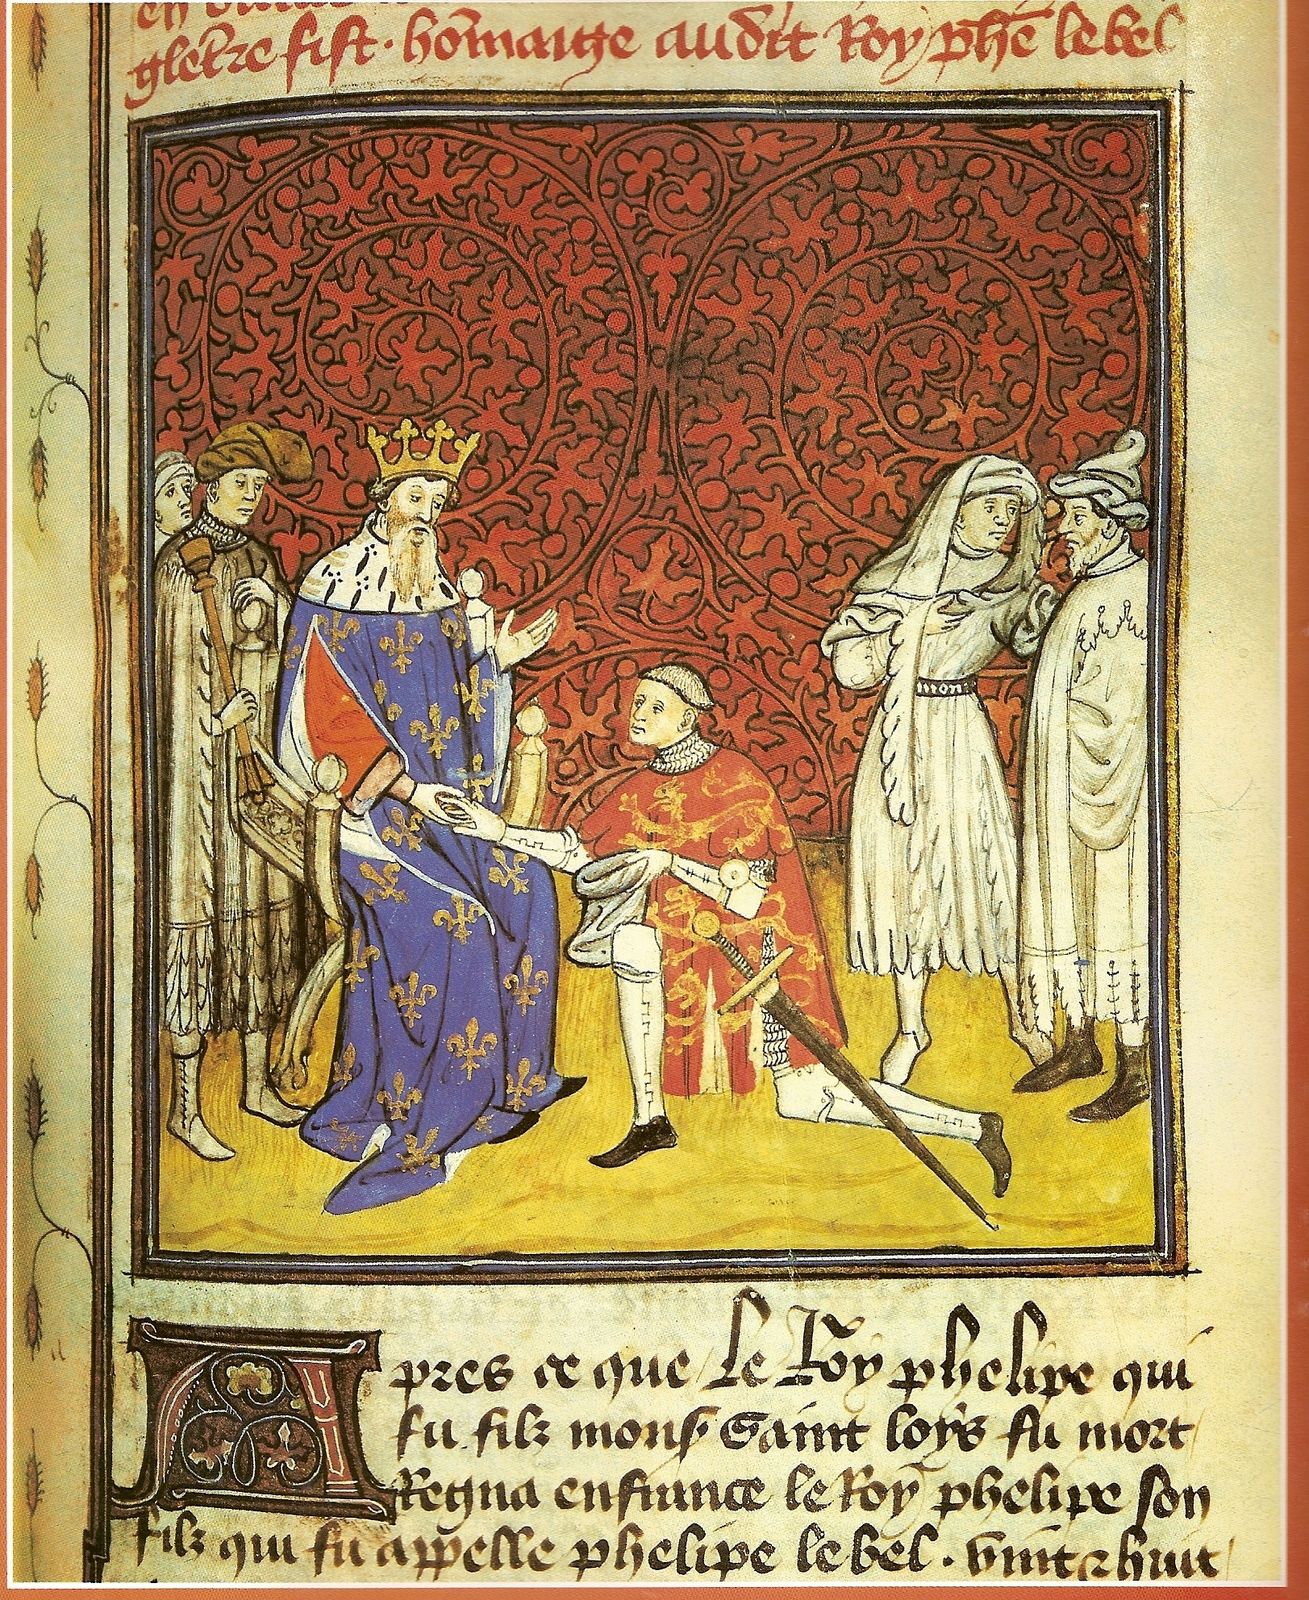 gletre fist. hōmaige audit Roy phē lebel
Apres ce que le Roy phelipe qui
fu filz mons saint loys fu mort
Regna enfrance le Roy phelipe son
filz qui fu appelle phelipe lebel. vint & huit